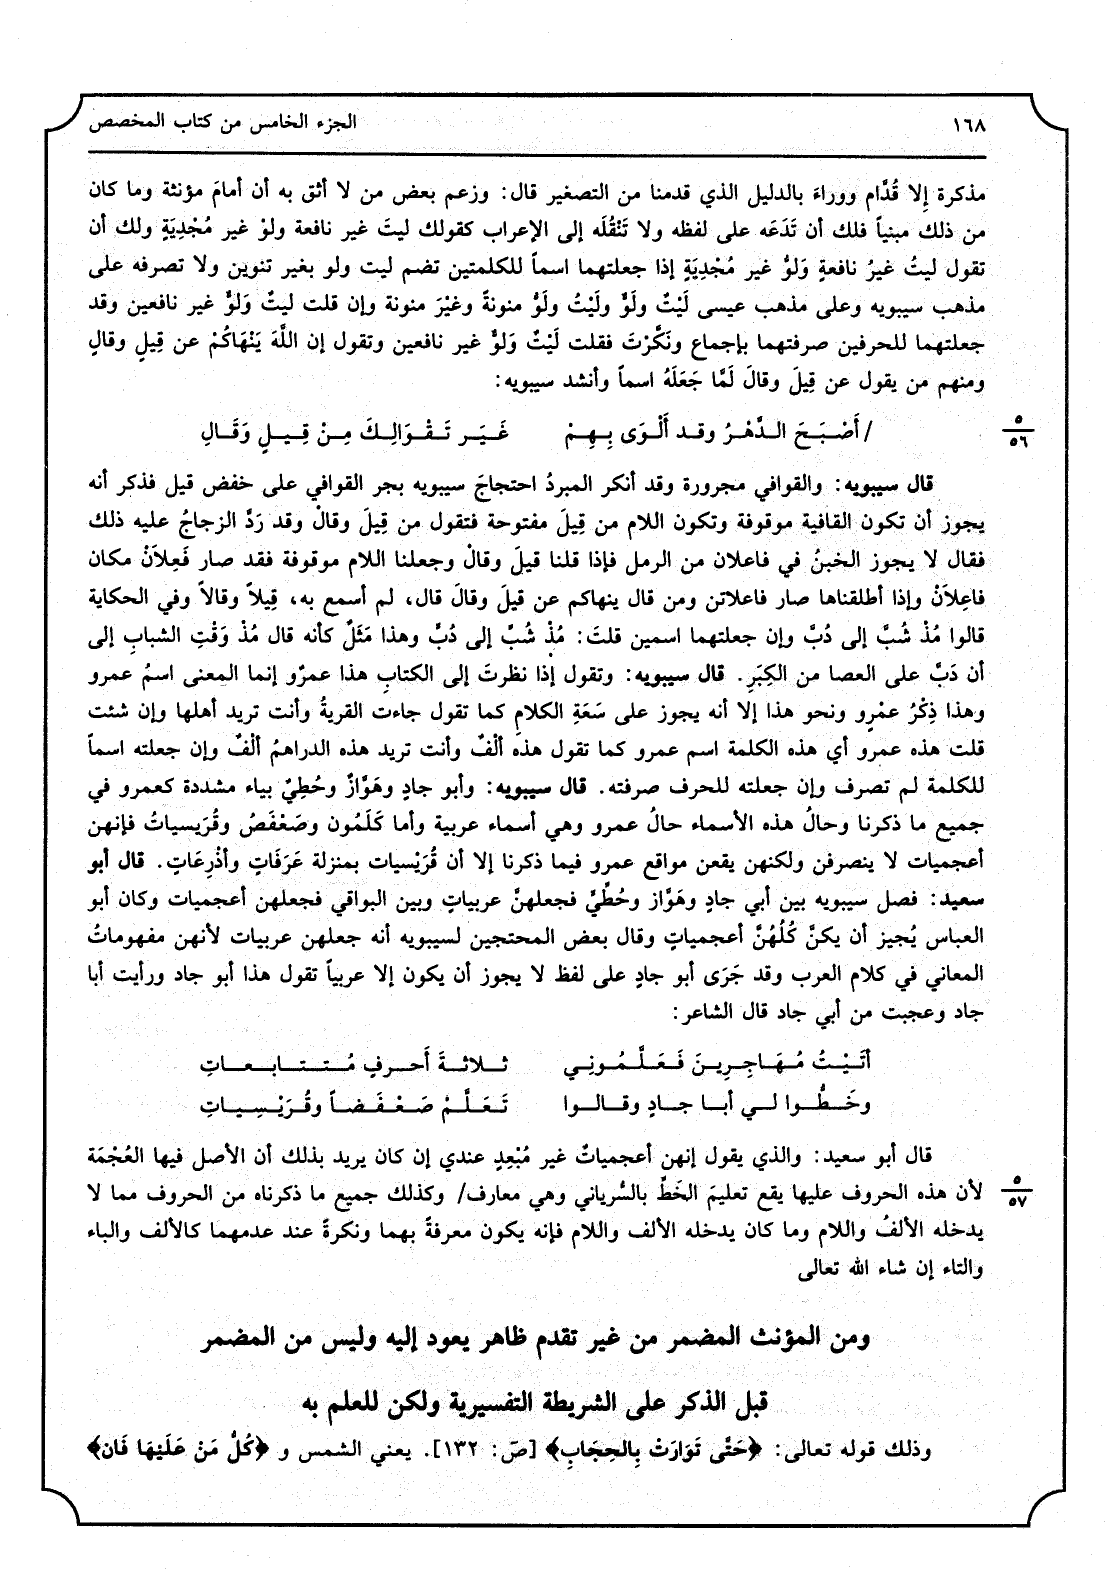 ١٦٨
الجزء الخامس من كتاب المخصص
مذكرة إلا قُدَّام ووراءَ بالدليل الذي قدمنا من التصغير قال: وزعم بعض من لا أثق به أن أمامَ مؤنثة وما كان
من ذلك مبنياً فلك أن تَدَعَه على لفظه ولا تَنْقُلَه إلى الإعراب كقولك ليتَ غير نافعة ولوْ غير مُجْدِيَةٍ ولك أن
تقول ليتُ غيرُ نافعةٍ وَلوُّ غير مُجْدِيَةٍ إذا جعلتهما اسماً للكلمتين تضم ليت ولو بغير تنوين ولا تصرفه على
مذهب سيبويه وعلى مذهب عيسى لَيْتٌ ولَوٌّ ولَيْتُ ولَوُّ منونةً وغيْرَ منونة وإن قلت ليتٌ وَلوٌّ غير نافعين وقد
جعلتهما للحرفين صرفتهما بإجماع ونَكَّرْتَ فقلت لَيْتٌ وَلوٌّ غير نافعين وتقول إن اللَّهَ يَنْهَاكُمْ عن قِيلٍ وقالٍ
ومنهم من يقول عن قِيلَ وقالَ لَمَّا جَعَلَهُ اسماً وأنشد سيبويه:
/ أَصْبَحَ الدَّهْرُ وقد أَلْوَى بِهِمْ غَيَر تَقْوَالِكَ مِنْ قِيلٍ وَقَالِ
٥
٥٦
قال سيبويه: والقوافي مجرورة وقد أنكر المبردُ احتجاجَ سيبويه بجر القوافي على خفض قيل فذكر أنه
يجوز أن تكون القافية موقوفة وتكون اللام من قِيلَ مفتوحة فتقول من قِيلَ وقالْ وقد رَدَّ الزجاجُ عليه ذلك
فقال لا يجوز الخبنُ في فاعلان من الرمل فإذا قلنا قيلَ وقالْ وجعلنا اللام موقوفة فقد صار فَعِلاَنْ مكان
فاعِلاَنْ وإذا أطلقناها صار فاعلاتن ومن قال ينهاكم عن قيلَ وقالَ قال، لم أسمع به، قِيلاً وقالاً وفي الحكاية
قالوا مُذْ شُبَّ إلى دُبَّ وإن جعلتهما اسمين قلتَ: مُذْ شُبٍّ إلى دُبٍّ وهذا مَثَلٌ كأنه قال مُذْ وَقْتِ الشبابِ إلى
أن دَبَّ على العصا من الكِبَرِ. قال سيبويه: وتقول إذا نظرتَ إلى الكتابِ هذا عمرٌو إنما المعنى اسمُ عمرو
وهذا ذِكْرُ عمْرٍو ونحو هذا إلا أنه يجوز على سَعَةِ الكلامِ كما تقول جاءت القريةُ وأنت تريد أهلها وإن شئت
قلت هذه عمرو أي هذه الكلمة اسم عمرو كما تقول هذه ألْفٌ وأنت تريد هذه الدراهمُ ألْفٌ وإن جعلته اسماً
للكلمة لم تصرف وإن جعلته للحرف صرفته. قال سيبويه: وأبو جادٍ وهَوَّازٌ وحُطِيٌّ بياء مشددة كعمرو في
جميع ما ذكرنا وحالُ هذه الأسماء حالُ عمرو وهي أسماء عربية وأما كَلَمُون وصَعْفَصُ وقُرَيسياتُ فإنهن
أعجميات لا ينصرفن ولكنهن يقعن مواقع عمرو فيما ذكرنا إلا أن قُرَيْسيات بمنزلة عَرَفَاتٍ وأذْرِعَاتٍ. قال أبو
سعيد: فصل سيبويه بين أبي جادٍ وهَوَّاز وحُطِّيٍّ فجعلهنَّ عربياتٍ وبين البواقي فجعلهن أعجميات وكان أبو
العباس يُجيز أن يكنَّ كُلُهُنَّ أعجمياتٍ وقال بعض المحتجين لسيبويه أنه جعلهن عربيات لأنهن مفهوماتُ
المعاني في كلام العرب وقد جَرَى أبو جادٍ على لفظ لا يجوز أن يكون إلا عربياً تقول هذا أبو جاد ورأيت أبا
جاد وعجبت من أبي جاد قال الشاعر:
أتَيْتُ مُهَاجِرِينَ فَعَلَّمُونِي ثلاثةَ أَحرفٍ مُتتابعاتِ
وخَطُّوا لي أبا جادٍ وقالوا تَعَلَّمْ صَعْفَضاً وقُرَيْسِياتِ
قال أبو سعيد: والذي يقول إنهن أعجمياتٌ غير مُبْعِدٍ عندي إن كان يريد بذلك أن الأصل فيها العُجْمَة
لأن هذه الحروف عليها يقع تعليمَ الخَطِّ بالسُّرياني وهي معارف/ وكذلك جميع ما ذكرناه من الحروف مما لا
٥
٥٧
يدخله الألفُ واللام وما كان يدخله الألف واللام فإنه يكون معرفةً بهما ونكرةً عند عدمهما كالألف والباء
والتاء إن شاء الله تعالى
ومن المؤنث المضمر من غير تقدم ظاهر يعود إليه وليس من المضمر
قبل الذكر على الشريطة التفسيرية ولكن للعلم به
وذلك قوله تعالى: ﴿حَتَّى تَوَارَتْ بِالحِجَابِ﴾ [صَ: ١٣٢]. يعني الشمس و ﴿كُلُّ مَنْ عَلَيْهَا فَان﴾